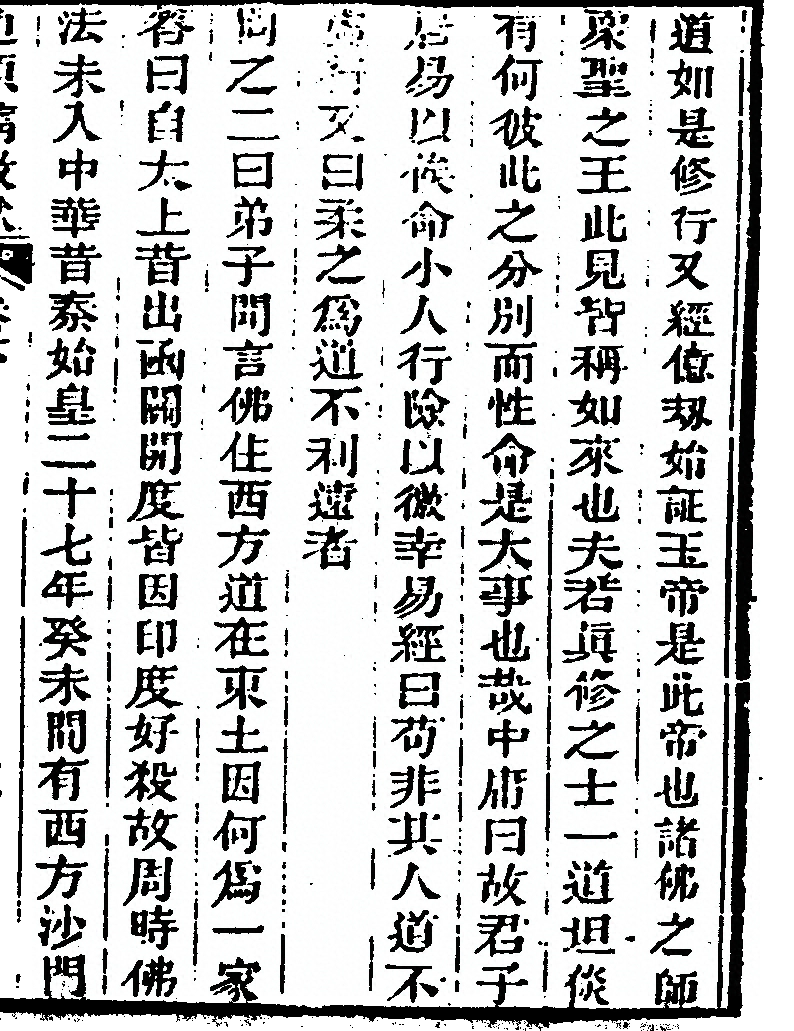 道如是修行又經億劫始証玉帝是此帝也諸佛之師
衆聖之王此見皆稱如來也夫若眞修之士一道坦倓
有何彼此之分別而性命是大事也哉中庸曰故君子
居易以俟命小人行險以徼幸易經曰苟非其人道不
虛行又曰柔之爲道不利遠者
問之二曰弟子聞言佛住西方道在東土因何爲一家
答曰自太上昔出函關開度皆因印度好殺故周時佛
法未入中華昔秦始皇二十七年癸未間有西方沙門